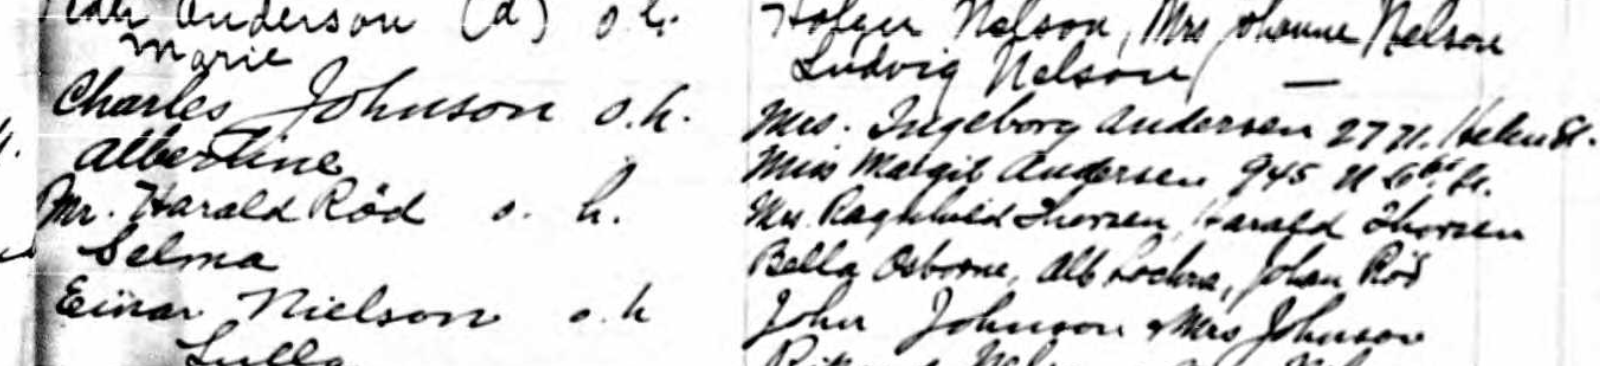 Anderson (d) o.h.
Marie
Charles Johnson o.h.
Albertine
Mr. Harald Röd o. h.
Selma
Einar Nielson o.h
Lulla
Holger Nelson, Mrs Johanne Nelson
Ludvig Nelson, —
Mrs. Ingeborg Andersen 27 N. Helen St.
Miss Margit Andersen 945 N
Mrs. Ragnhild Thorsen, Harald Thorsen
Bella Osborne, Alb Johan Röd
John Johnson & Mrs Johnson